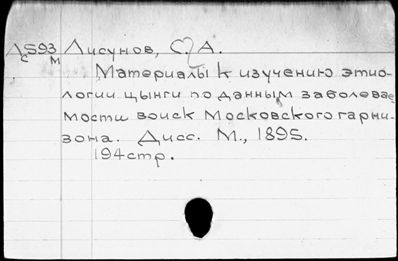 Лс593 Лисунов, С. А.
С м
Материалы к изучению этио-
логии цынги по данным заболевае
мости войск Московского гарни-
зона. Дисс. М., 1895.
194стр.